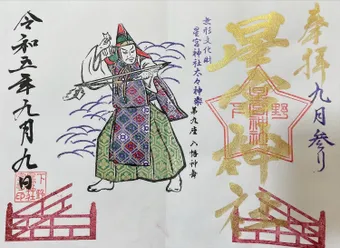 奉拝
九月参り
星宮神社
下野
星宮神社
無形文化財
星宮神社太々神楽
第九座 八幡神舞
令和五年九月九日